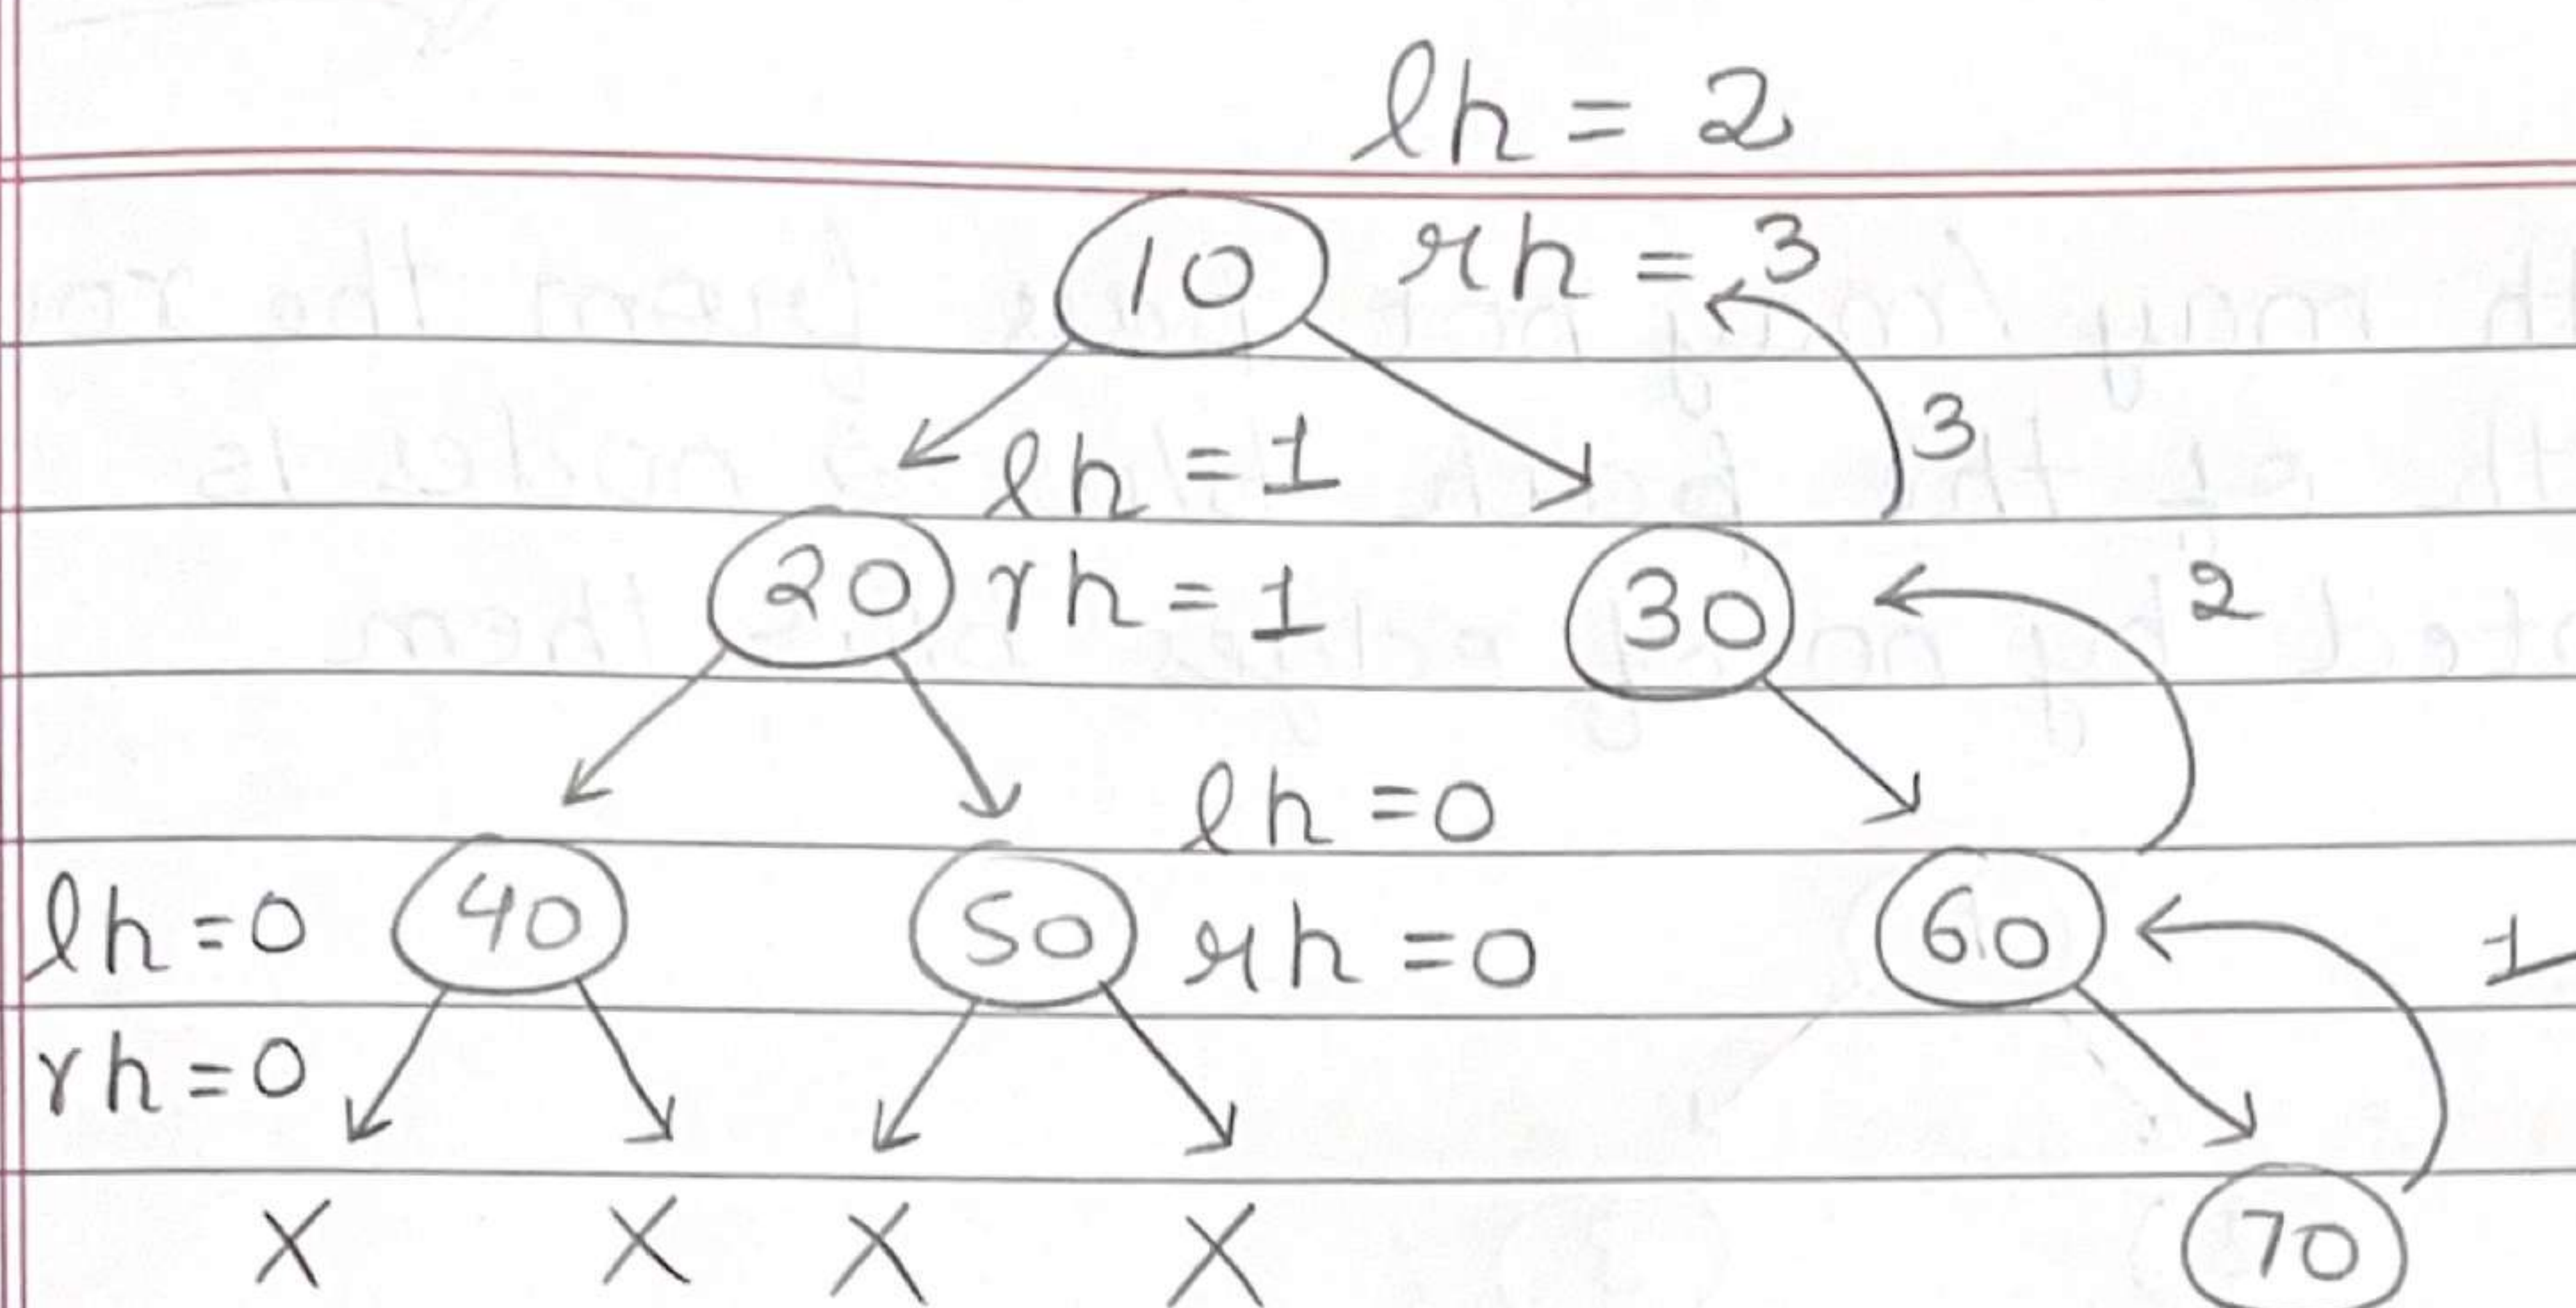 lh = 2
10 rh = 3
lh = 1 3
20 rh = 1 30 2
lh = 0
lh = 0 40 50 rh = 0 60 1
rh = 0
X X X X 70